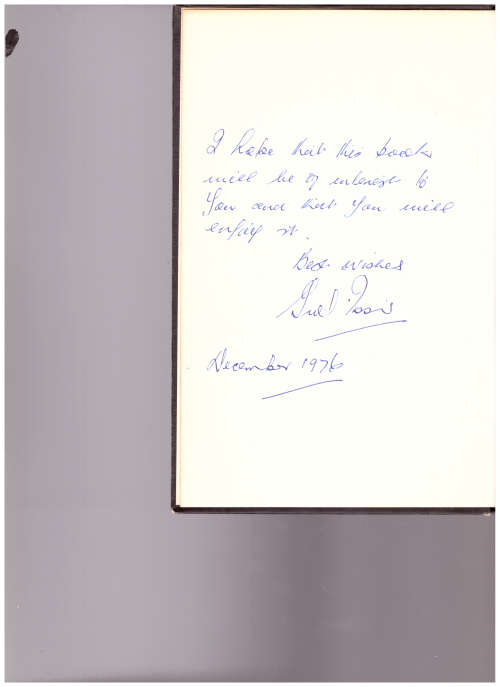 I hope that this book
will be of interest to
you and that you will
enjoy it.
Best wishes
December 1976